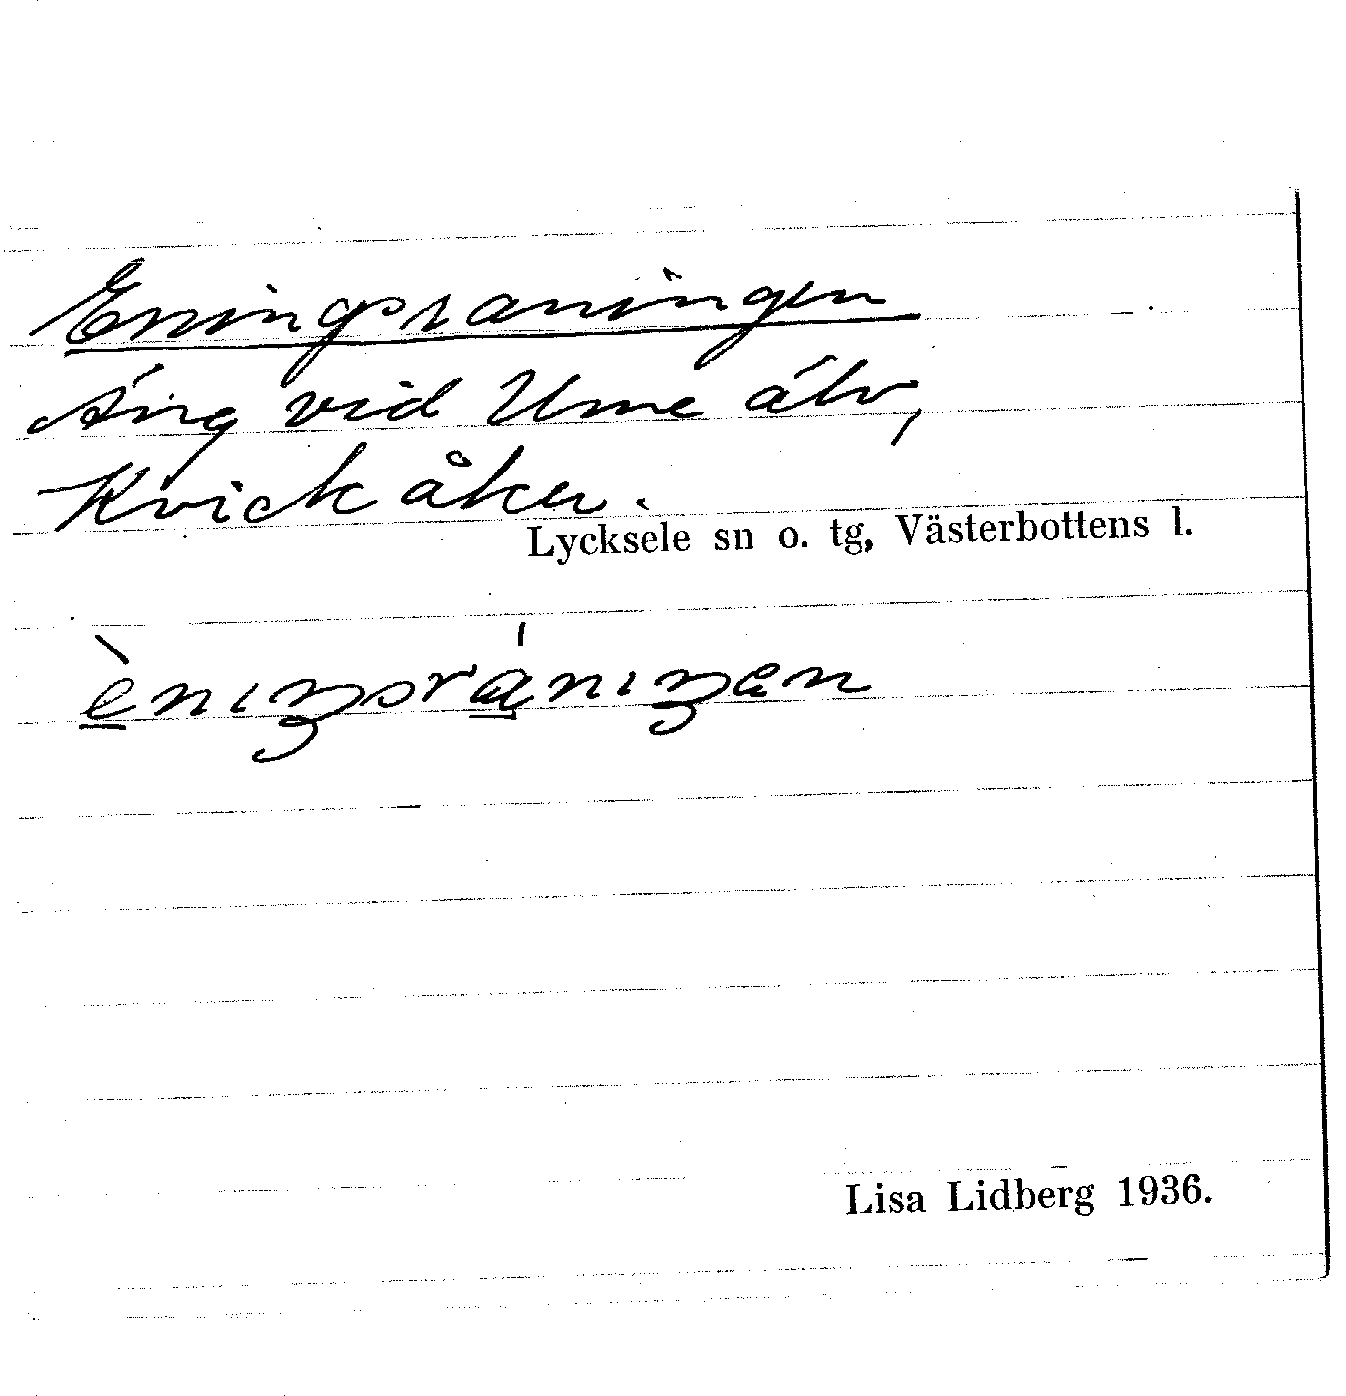 Eningsraningen
Äng vid Ume älv,
Kvickåker.
Lycksele sn o. tg, Västerbottens l.
èniŋsrániŋɐn
Lisa Lidberg 1936.